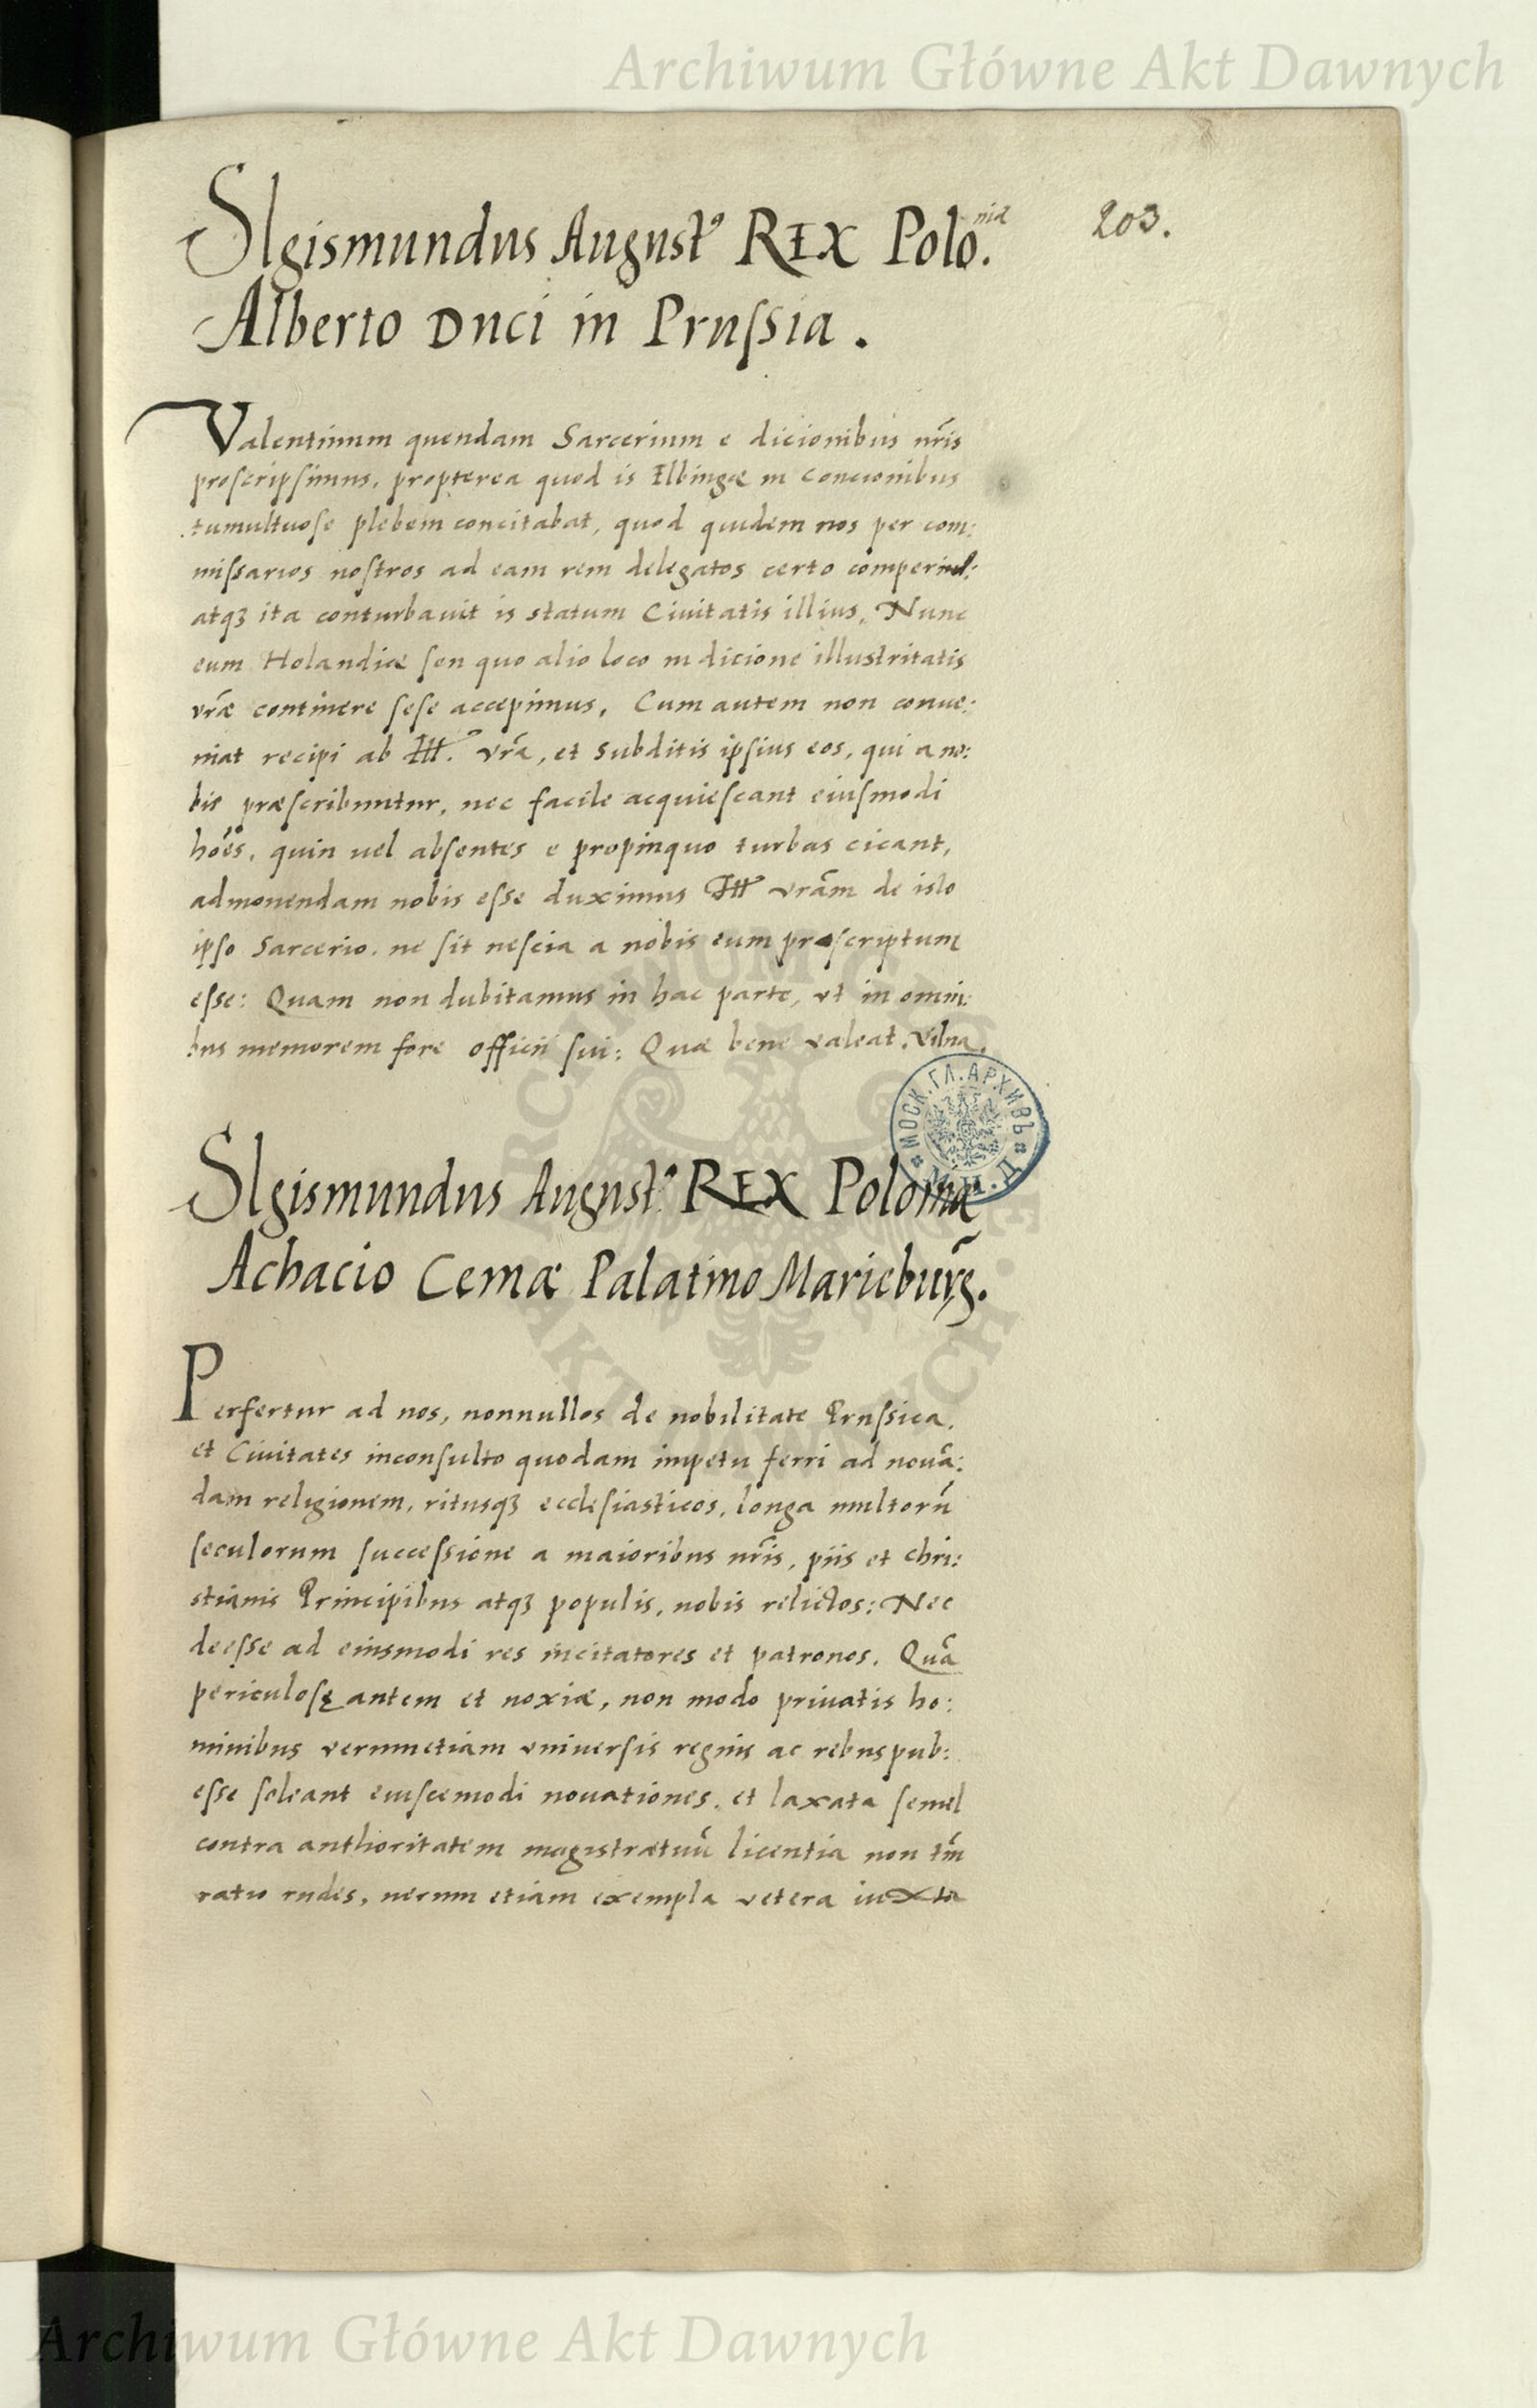 Archiwum Główne Akt Dawnych
203.
SIgismundus August9 REX Polo.niæ
Alberto Duci in Prussia.
Valentinum quendam Sarcerium e dicionibus nr̃is
proscripsimus, propterea quod is Elbingæ in concionibus
tumultuose plebem concitabat, quod quidem nos per com:
missarios nostros ad eam rem delegatos certo
atqꝫ ita conturbavit is statum Civitatis illius. Nunc
eum Holandiæ seu quo alio loco in dicione illustritatis
vr̃æ continere sese accepimus. Cum autem non conve:
niat recipi ab Ill. vr̃a, et subditis ipsius eos, qui a no:
bis præscribuntur, nec facile acquiescant eiusmodi
hoẽs, quin vel absentes e propinquo turbas cieant,
admonendam nobis esse duximus Ill vr̃am de isto
ipso Sarcerio, ne sit nescia a nobis eum proscriptum
esse: Quam non dubitamus in hac parte, vt in omni:
bus memorem fore officii sui: Quæ bene valeat. Vilna.
МОСК. ГЛ. АРХИВЪ М.И.Д.
SIgismundus August9 REX Poloniæ
Achacio Cemæ Palatino Marieburg̃.
Perfertur ad nos, nonnullos de nobilitate Prussica,
et Civitates inconsulto quodam impetu ferri ad novã:
dam religionem, ritusqꝫ ecclesiasticos, longa multorũ
seculorum successione a maioribus nr̃is, piis et chri:
stianis Principibus atqꝫ populis, nobis relictos: Nec
deesse ad eiusmodi res incitatores et patronos. Quã
periculosę autem et noxiæ, non modo privatis ho:
minibus verumetiam vniversis regnis ac rebuspub:
esse soleant eiuscemodi novationes, et laxata semel
contra authoritatem magistratuũ licentia non tm̃
ratio rudes, verum etiam exempla vetera iuxta
ARCHIWUM GŁÓWNE AKT DAWNYCH
Archiwum Główne Akt Dawnych